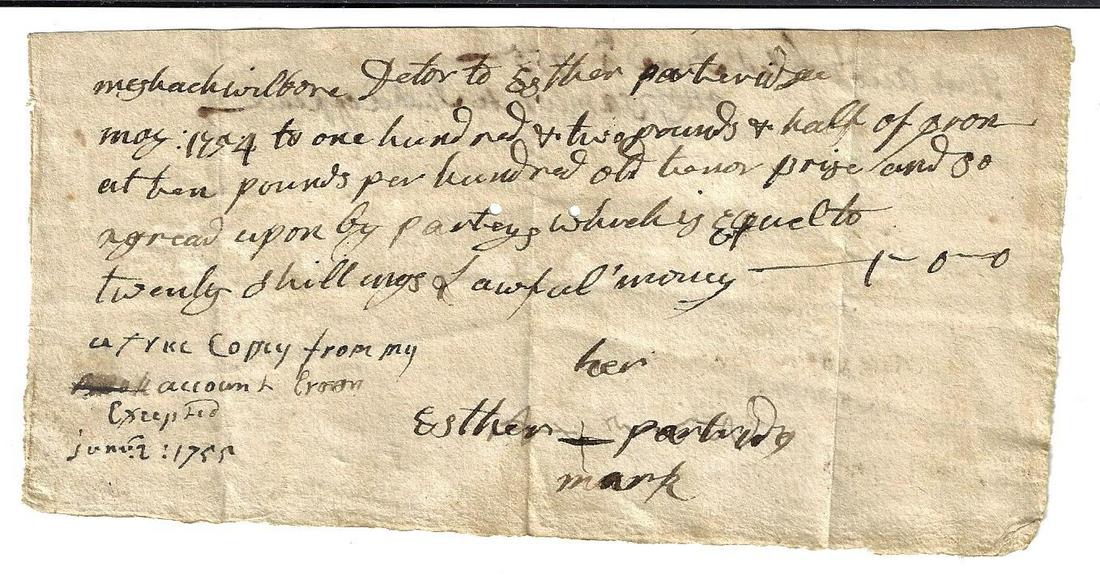 meshack wilbore Detor to Esther parteridge
may : 1754 to one hundred & two pounds & half of iron
at ten pounds per hundred old tenor prise and so
agread upon by parteys which is Equel to
twenty shillings Lawful money — 1 - 0 - 0
a true Coppey from my
account Erors
Excepted
her
Esther + partridg
mark
: 1755